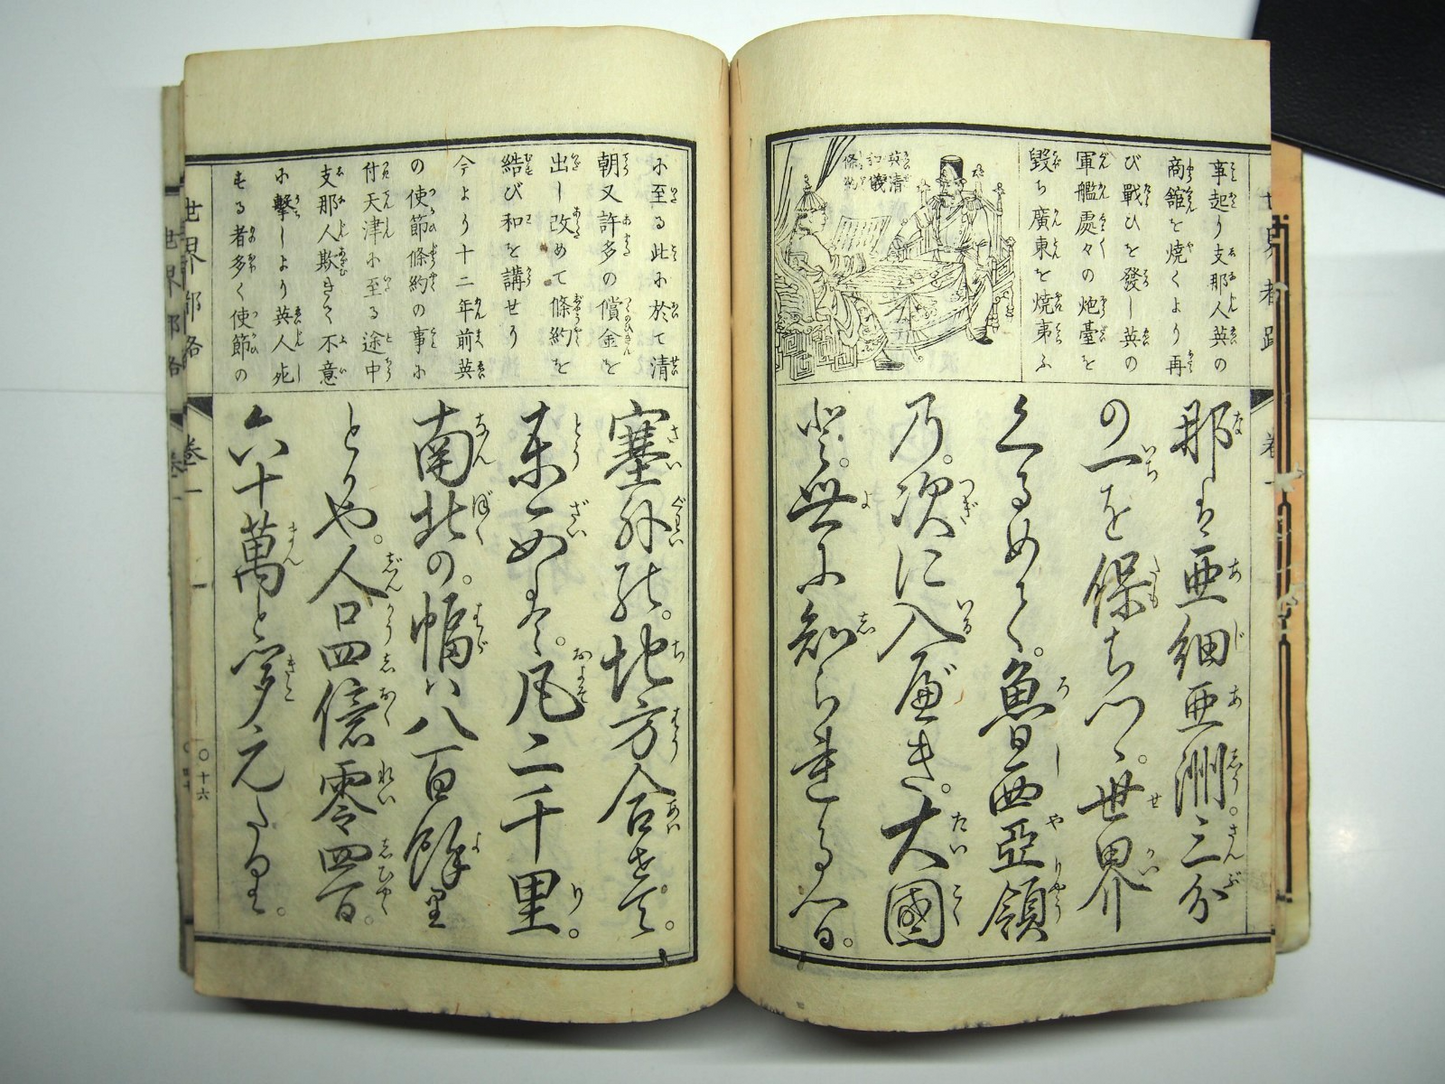 事起り支那人英の
商舘を焼くより再
び戰ひを發し英の
軍艦處々の炮臺を
毀ち廣東を焼夷ふ
英清
和議
條約
那は亜細亜洲。三分
の一を保ちつゝ。世界
くるめて。魯西亞領
乃。次に入べき。大國
世に知られ
に至る此に於て清
朝又許多の償金を
出し改めて條約を
結び和を講せり
今より十二年前英
の使節條約の事に
付天津に至る途中
支那人欺きて不意
に撃しより英人死
する者多く使節の
塞外の。地方合せて。
東西は。凡二千里。
南北の。幅は八百餘里
とかや。人口四億零四百。
六十萬と聞えたり。
世界都路
卷一
〇十六